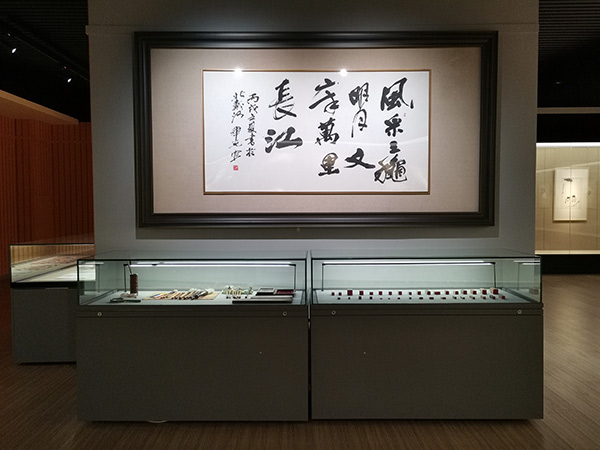 風采三穐
明月文
章萬里
長江
丙戌之夏書於
北戴河